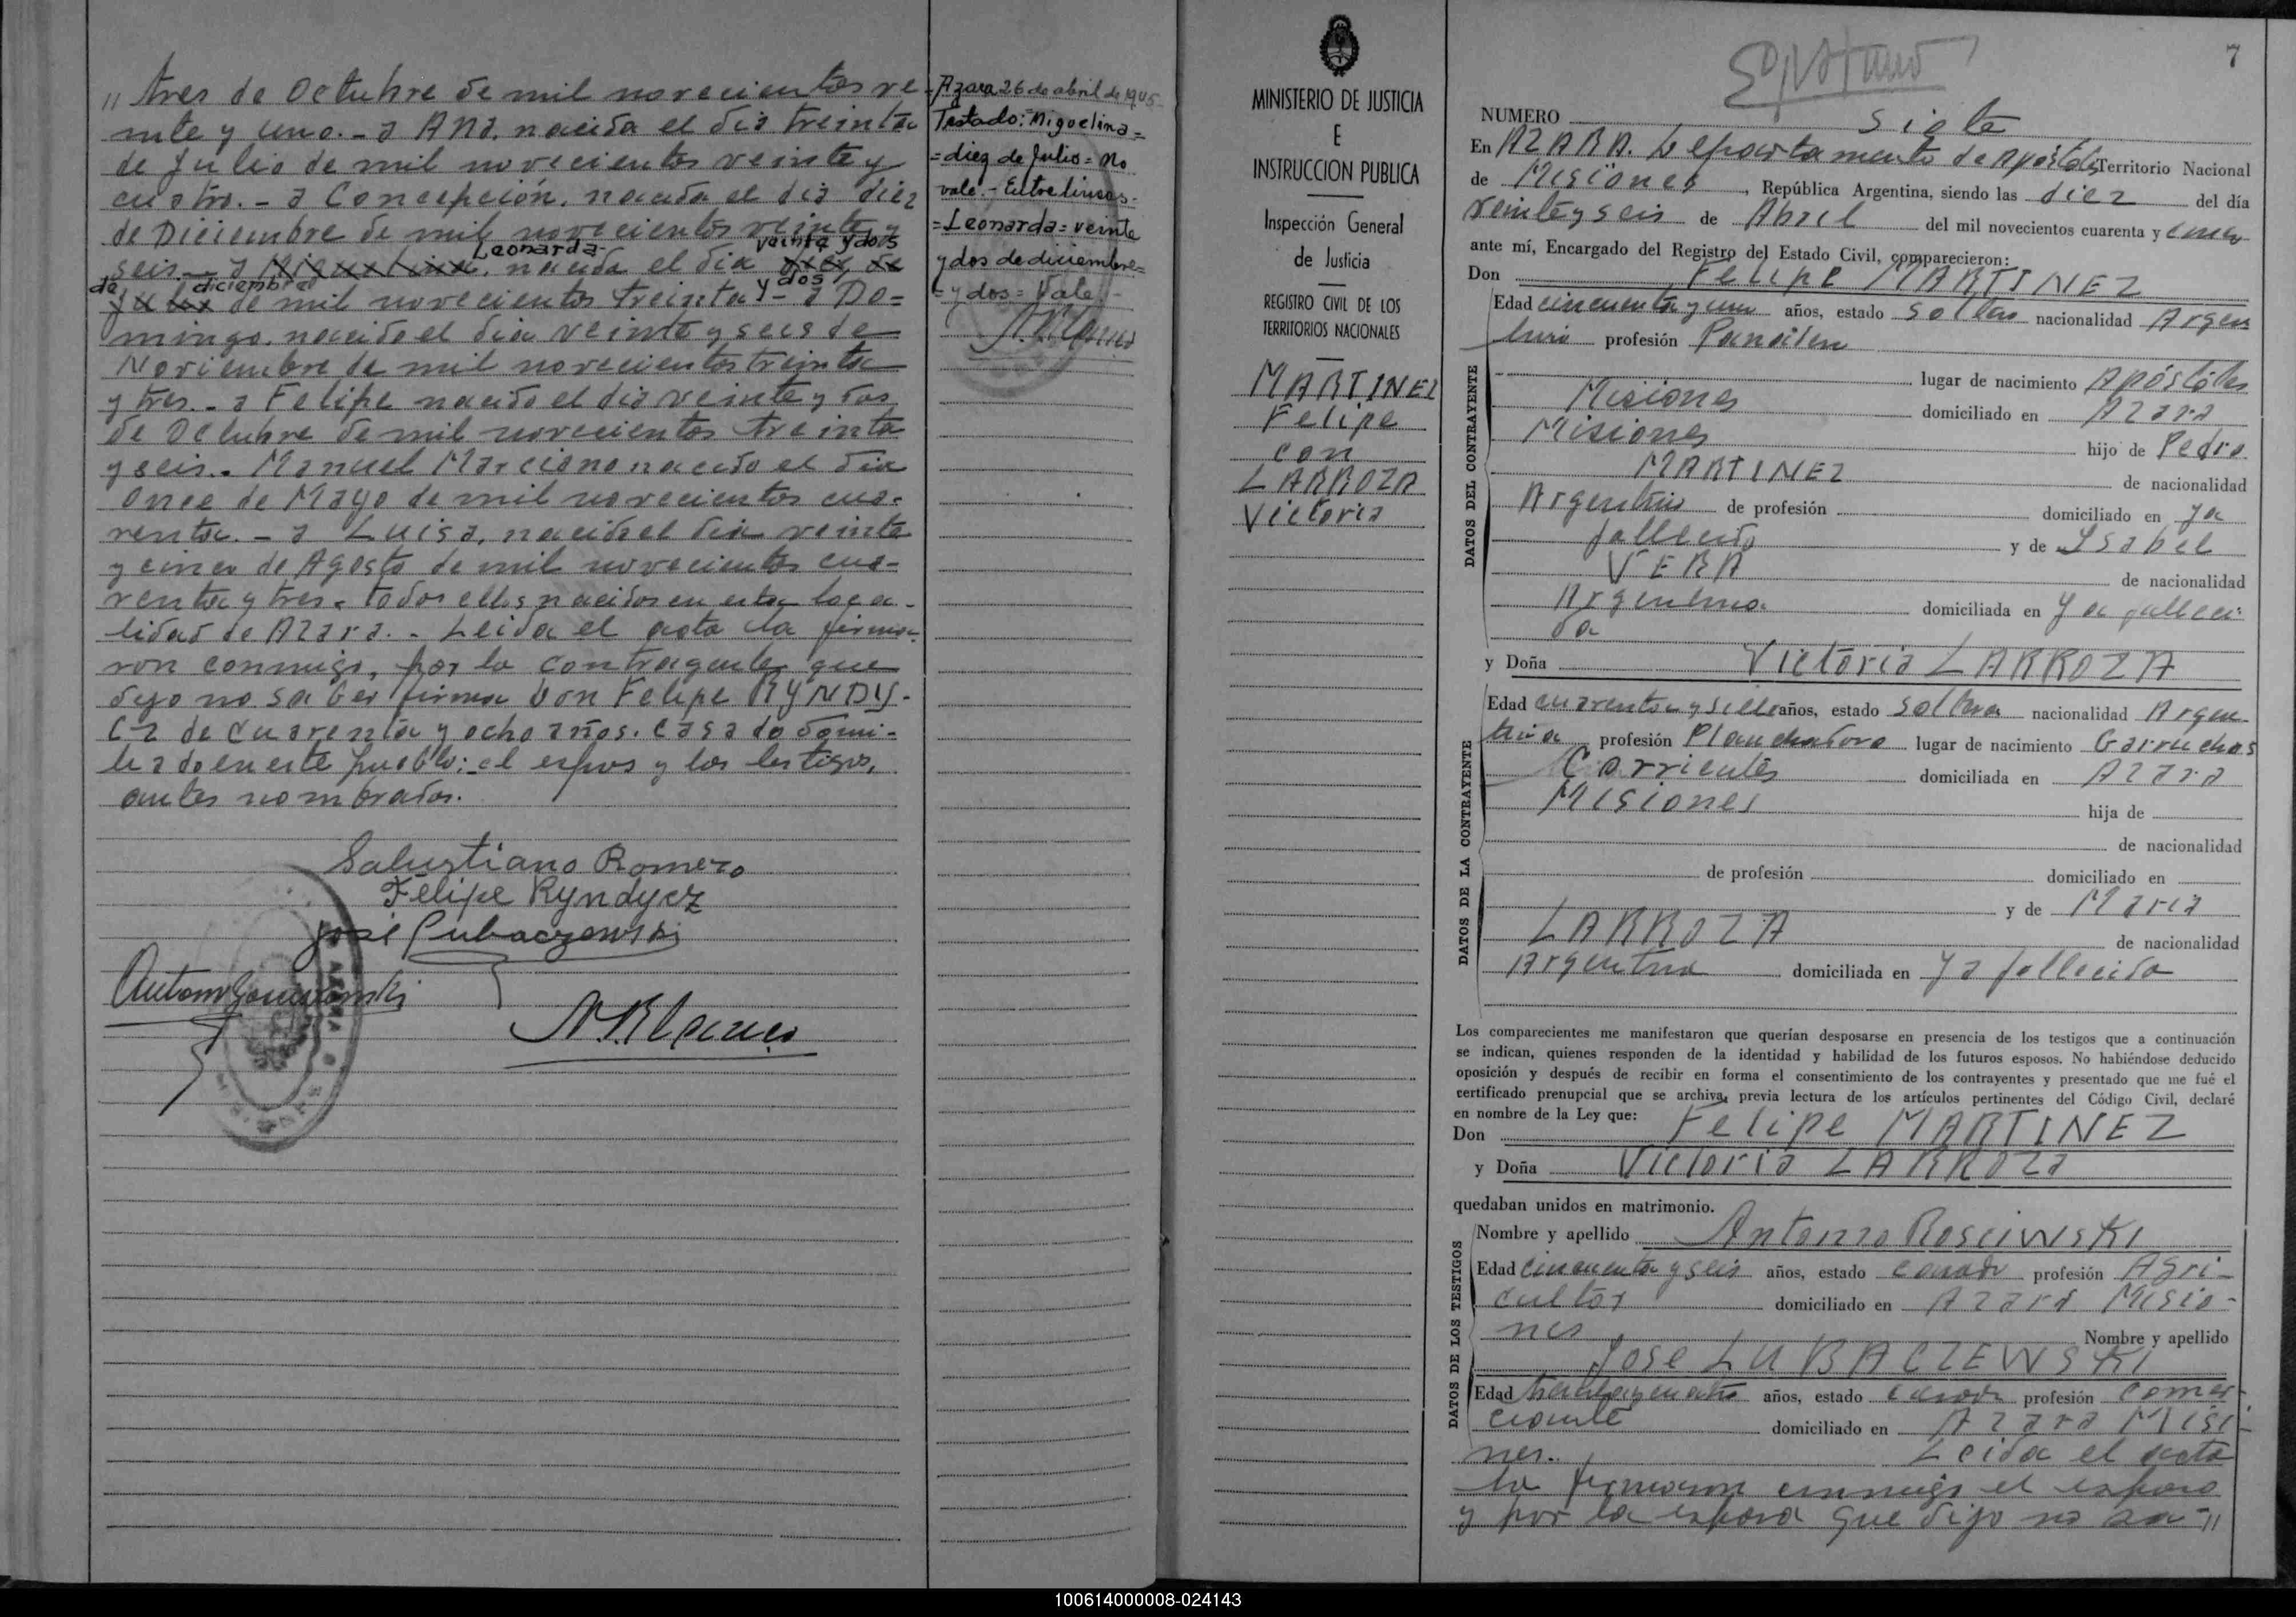 " tres de Octubre de mil novecientos ve-
inte y uno.- a Ana, nacida el dia treinta
de Julio de mil novecientos veinte y
cuatro.- a Concepción, nacida el dia diez
de Diciembre de mil novecientos veinte y
Leonarda- veinte y dos
seis.- a Miguelina, nacida el dia diez de
de diciembre y dos
Julio de mil novecientos treinta y- a Do=
mingo, nacido el dia veinte y seis de
Noviembre de mil novecientos treinta
y tres.- a Felipe nacido el dia veinte y dos
de Octubre de mil novecientos treinta
y seis.- Manuel Marciano nacido el dia
once de Mayo de mil novecientos cua-
renta.- a Luisa, nacida el dia veinte
y cinco de Agosto de mil novecientos cua-
renta y tres.- todos ellos nacidos en esta loca-
lidad de Azara.- Leida el acta la firma-
ron conmigo, por la contrayente que
dijo no saber firmar Don Felipe RYNDY-
CZ de cuarenta y ocho años. casado domi-
liado en este pueblo: el esposo y los testigos,
antes nombrados.
Salustiano Romero
Felipe Ryndycz
José Lubaczewski
Antonio
A. Blanco
AZARA
- Azara 26 de abril de 1945-
Testado: Miguelina=
=diez de Julio= no
vale.- Entrelineas-
=Leonarda= veinte
y dos de diciembre=
=y dos= Vale.-
A. Blanco
MINISTERIO DE JUSTICIA
E
INSTRUCCION PUBLICA
Inspección General
de Justicia
REGISTRO CIVIL DE LOS
TERRITORIOS NACIONALES
MARTINEZ
Felipe
con
LARROZA
Victoria
7
NUMERO Siete
En AZARA. Departamento de Apóstoles Territorio Nacional
de Misiones, República Argentina, siendo las diez del día
veinte y seis de Abril del mil novecientos cuarenta y cinco
ante mí, Encargado del Registro del Estado Civil, comparecieron:
Don Felipe MARTINEZ
DATOS DEL CONTRAYENTE
Edad cincuenta y un años, estado soltero nacionalidad Argen
tino profesión Panadero
lugar de nacimiento Apóstoles
Misiones domiciliado en Azara
Misiones hijo de Pedro
MARTINEZ de nacionalidad
Argentino de profesión domiciliado en ya
fallecido y de Ysabel
VERA de nacionalidad
Argentina domiciliada en ya falleci-
da
y Doña Victoria LARROZA
DATOS DE LA CONTRAYENTE
Edad cuarenta y siete años, estado soltera nacionalidad Argen-
tina profesión Planchadora lugar de nacimiento Garruchos
Corrientes domiciliada en Azara
Misiones hija de
de nacionalidad
de profesión domiciliado en
y de Maria
LARROZA de nacionalidad
Argentina domiciliada en ya fallecida
Los comparecientes me manifestaron que querían desposarse en presencia de los testigos que a continuación
se indican, quienes responden de la identidad y habilidad de los futuros esposos. No habiéndose deducido
oposición y después de recibir en forma el consentimiento de los contrayentes y presentado que me fué el
certificado prenupcial que se archiva, previa lectura de los artículos pertinentes del Código Civil, declaré
en nombre de la Ley que:
Don Felipe MARTINEZ
y Doña Victoria LARROZA
quedaban unidos en matrimonio.
DATOS DE LOS TESTIGOS
Nombre y apellido Antonio
Edad cincuenta y seis años, estado casado profesión Agri-
cultor domiciliado en Azara Misio-
nes Nombre y apellido
Jose LUBACZEWSKI
Edad treinta y cuatro años, estado casado profesión comer-
ciante domiciliado en Azara Misi-
nes.- Leida el acta
la firmaron conmigo el esposo
y por la esposa que dijo no sa-"
100614000008-024143